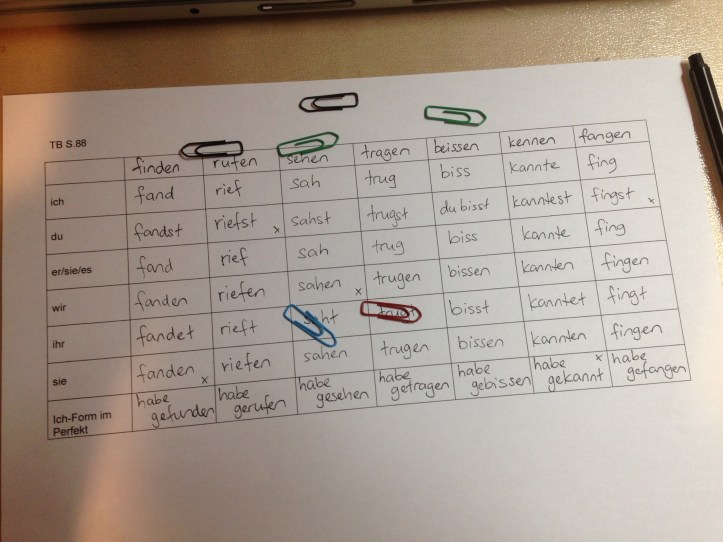 TB S.88
finden rufen sehen tragen beissen kennen fangen
ich fand rief sah trug biss kannte fing
du fandst riefst x sahst trugst du bisst kanntest fingst x
er/sie/es fand rief sah trug biss kannte fing
wir fanden riefen sahen x trugen bissen kannten fingen
ihr fandet rieft saht trugt bisst kanntet fingt
sie fanden x riefen sahen trugen bissen kannten fingen
Ich-Form im habe habe habe habe habe habe x habe
Perfekt gefunden gerufen gesehen getragen gebissen gekannt gefangen